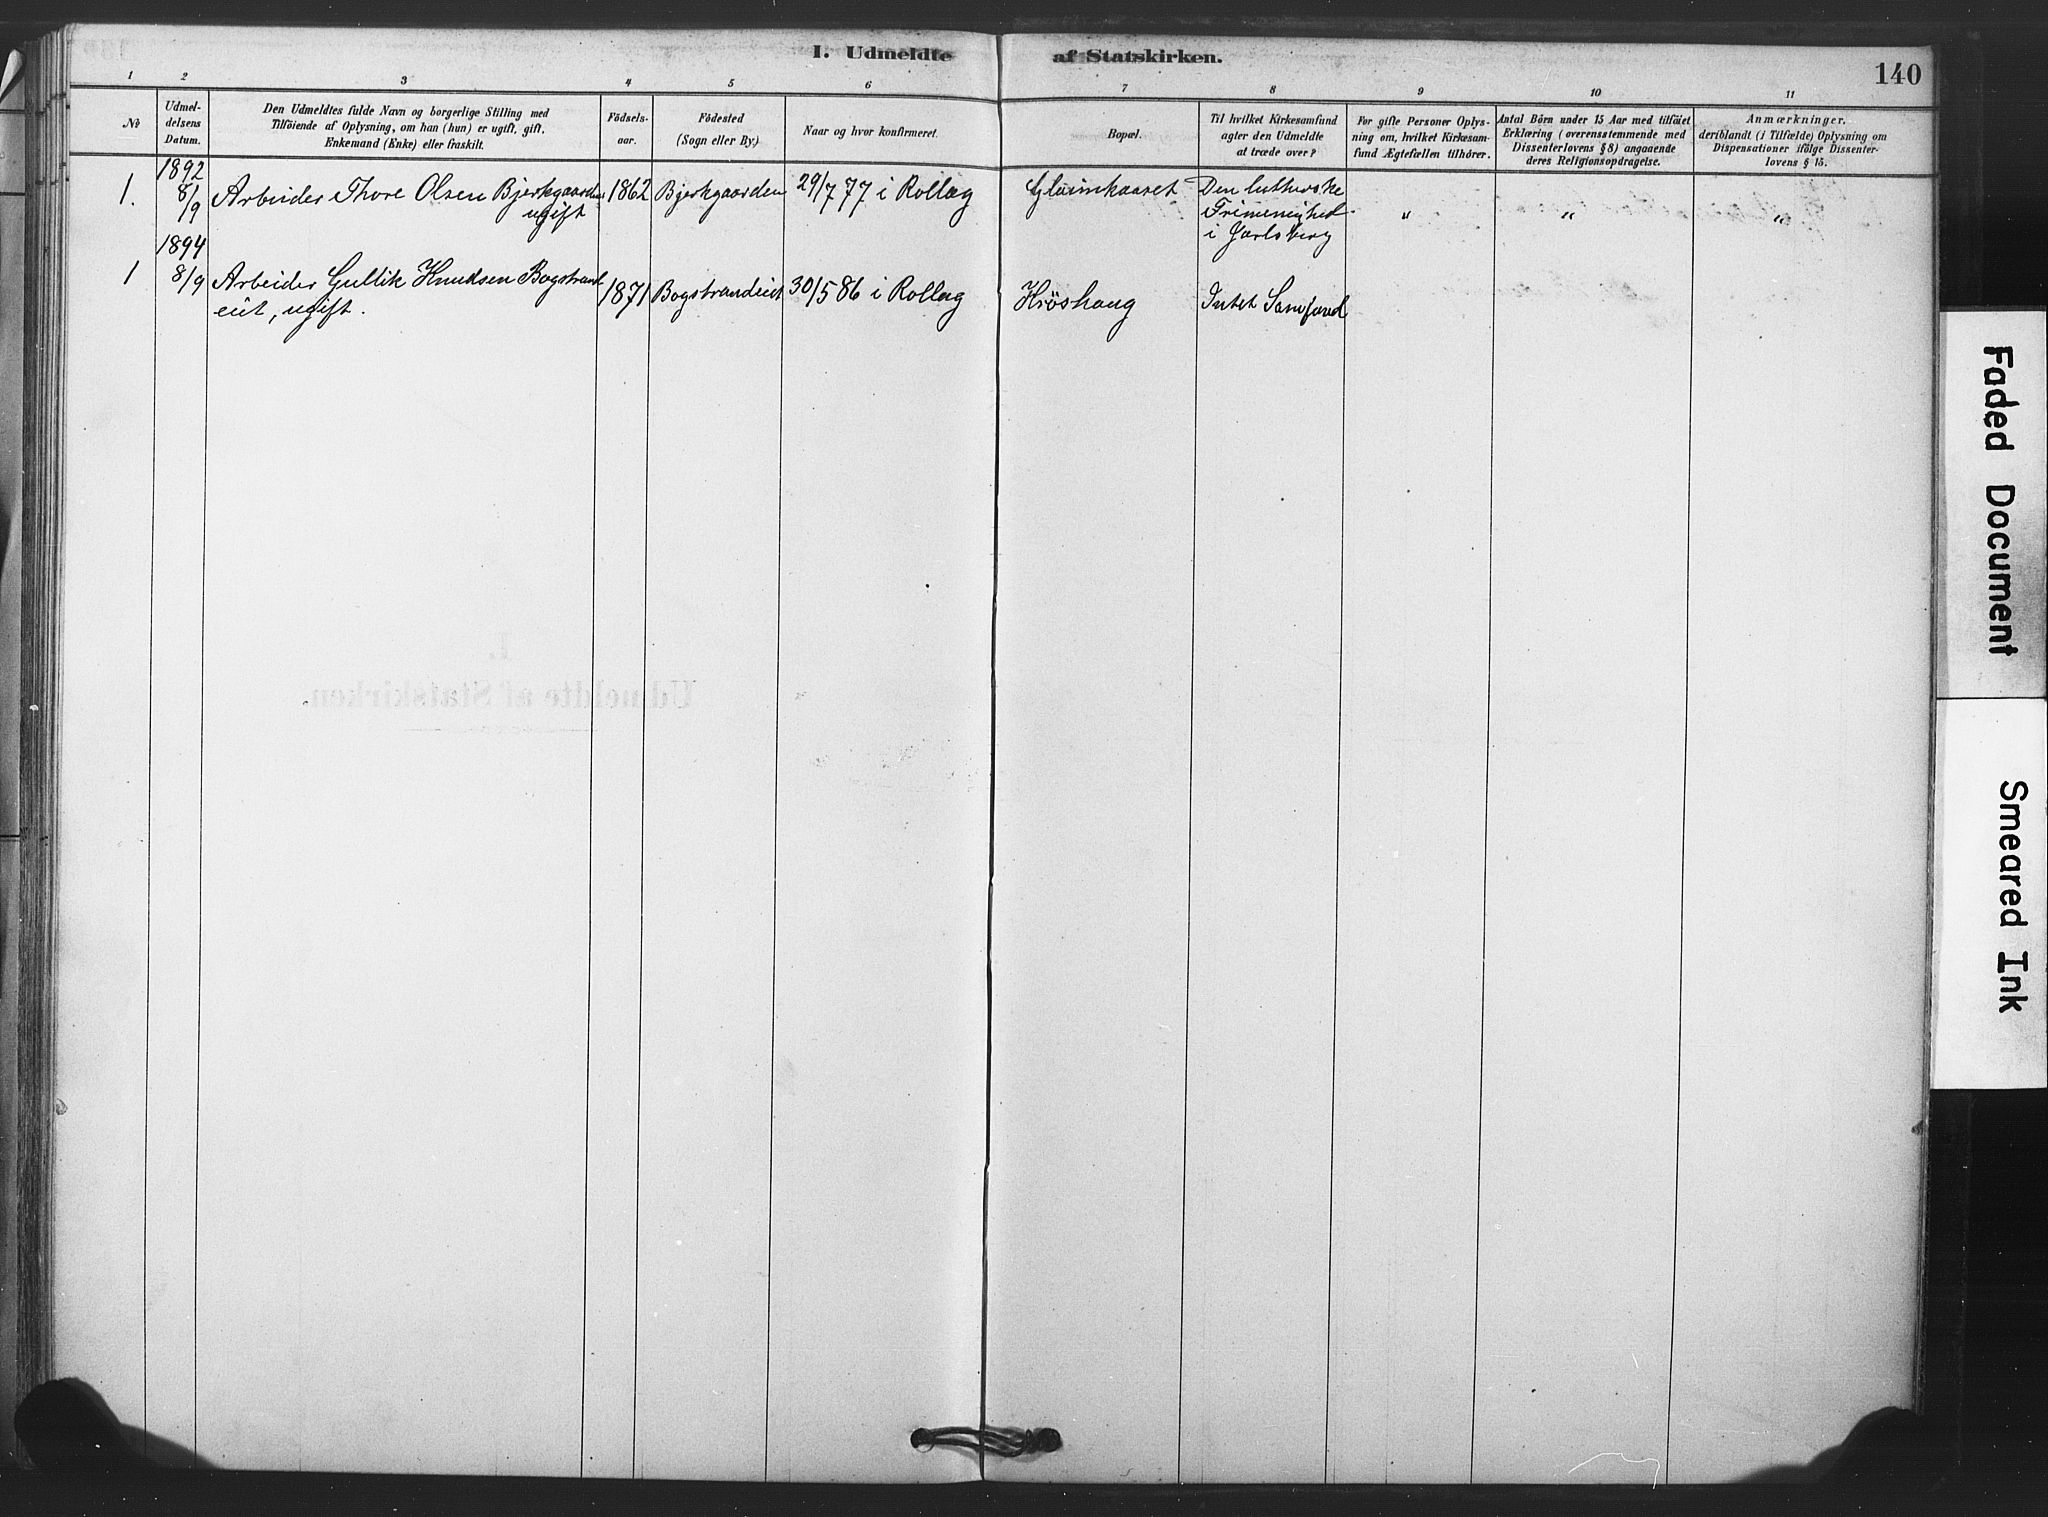 I. Udmeldte af Statskirken.
140
1 2 3 4 5 6 7 8 9 10 11
№
Udmel-
delsens
Datum.
Den Udmeldtes fulde Navn og borgerlige Stilling med
Tilföiende af Oplysning, om han (hun) er ugift, gift,
Enkemand (Enke) eller fraskilt.
Födsels-
aar.
Födested
(Sogn eller By.)
Naar og hvor konfirmeret.
Bopæl.
Til hvilket Kirkesamfund
agter den Udmeldte
at træde over?
For gifte Personer Oplys-
ning om, hvilket Kirkesam-
fund Ægtefællen tilhörer.
Antal Börn under 15 Aar med tilföiet
Erklæring (overensstemmende med
Dissenterlovens § 8) angaaende
deres Religionsopdragelse.
Anmærkninger,
deriblandt (i Tilfælde) Oplysning om
Dispensationer ifölge Dissenter-
lovens § 15.
1892
1. 8/9 Arbeider Thore Olsen Bjerkgaarden
ugift
1862 Bjerkgaarden 29/7 77 i Rollag
Den lutherske
Frimenighed
i Jarlsberg
" " "
1894
1 8/9 Arbeider Gullik Knudsen Bogstrand
eiet, ugift.
1871 Bogstrandeiet 30/5 86 i Rollag Kröshaug Intet Samfund
I.
Udmeldte af Statskirken.
Faded Document
Smeared Ink